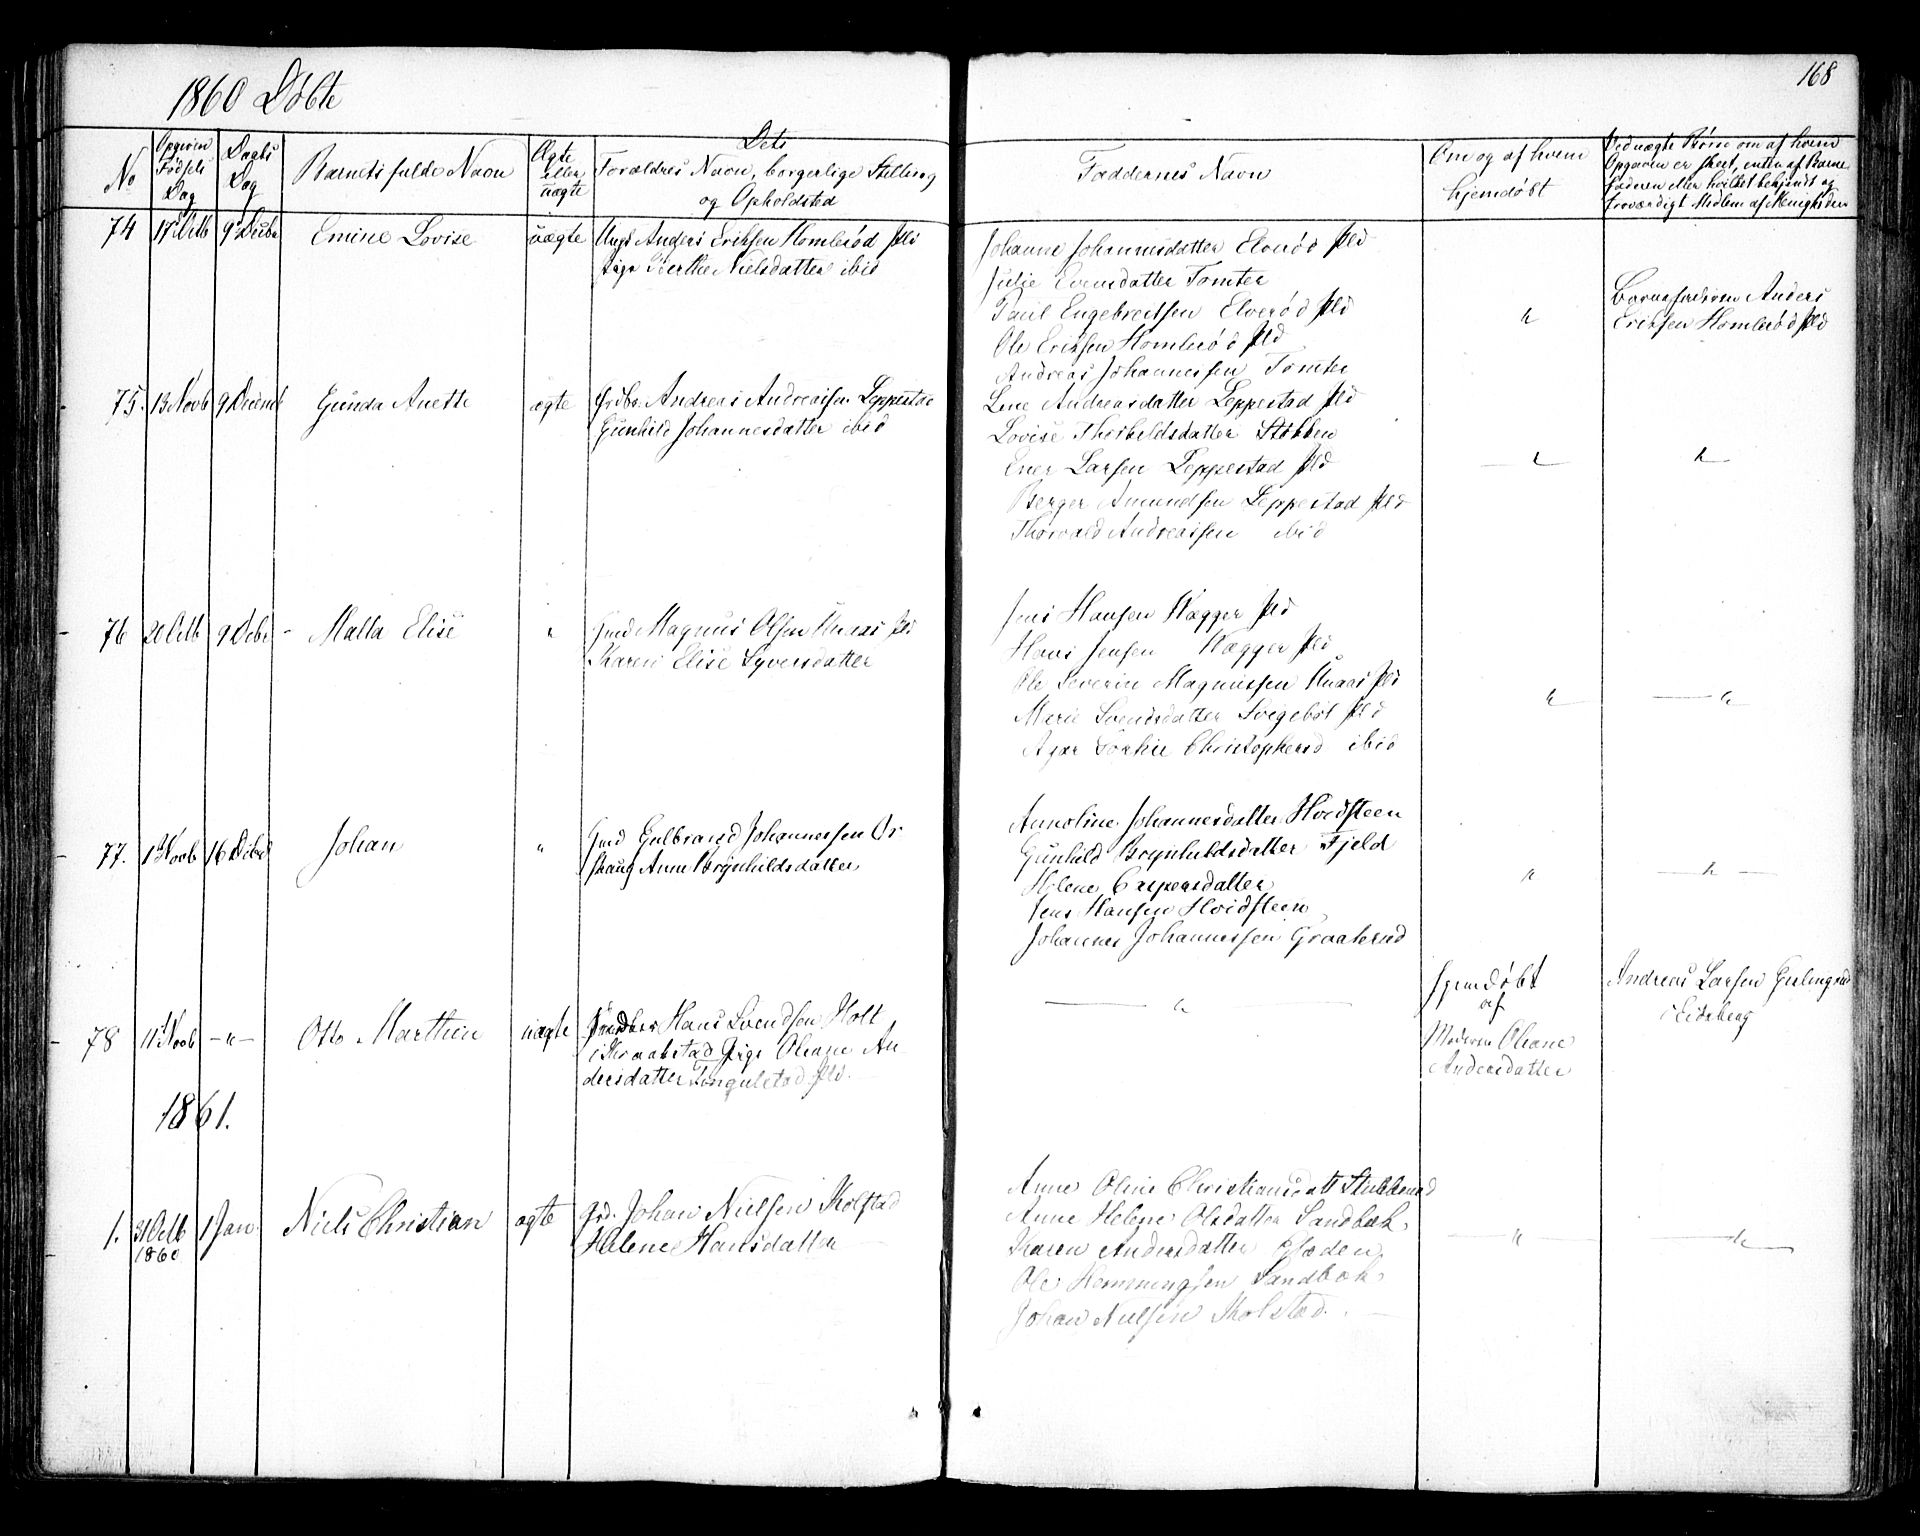 168
1860 Døbte
No
Opgiven Fødsels Dag
Daabs Dag
Barnets fulde Navn
Ægte eller uægte
Dets
Forældres Navn, borgerlige Stilling
og Opholdsted
Faddernes Navn
Om og af hvem
hjemdøbt
Ved uægte Børn om af hvem
Opgaven er skeet, enten af Barne
faderen eller hvilket bekjendt og
troværdigt Medlem af Menigheden
74 17 Octb 9 Decbr Emine Lovise uægte Ungk Anders Eriksen Homlerød Pld
Pige Berthe Nielsdatter ibid
Johanne Johannesdatter Elverød Pld
Julie Evensdatter Tomter
Paul Engebretsen Elverød Pld
Ole Eriksen Homlerød Pld
Andreas Johannessen Tomter
"
Barnefaderen Anders
Eriksen Homlerød Pld
75. 13 Novb 9 Decemb Gunda Anette ægte Grdbr. Andreas Andreassen Leppestad
Gunhild Johannesdatter ibid
Lene Andreasdatter Leppestad Pld
Lovise Thorkeldsdatter Stokken
Ener Larsen Leppestad Pld
Berger Amundsen Leppestad Pld
Thorvald Andreassen ibid
" "
76 2 Octb 9 Decbr Malla Elise " Gmd Magnus Olsen Knaas Pld
Karen Elise Syversdatter
Jens Hansen Wægger Pld
Hans Jensen Wægger Pld
Ole Severin Magnussen Knaas Pld
Marie Svendsdatter Svegebøl Pld
Agar Sophie Christophersd ibid
" "
77. 1 Novb 16 Decbr Johan " Gmd Gulbrand Johannessen Or
skaug Anne Brynhildsdatter
Annoline Johannesdatter Hvidsteen
Gunhild Brynhildsdatter Fjeld
Helene Caspersdatter
Jens Hansen Hvidsteen
Johannes Johannessen Graalerud
" "
78 11 Novb " Otto Marthin uægte Gaardbr Hans Svendsen Holt
i Kraakstad Pige Oleane An
dersdatter Tingulstad Pld.
"
hjemdøbt
af
Moderen Oleane
Andersdatter
Andreas Larsen Gulingrud
i Eidsberg
1861.
1. 31 Octb 1860 1 Jan. Niels Christian ægte Grd. Johan Nielsen Kolstad
Helene Hansdatter
Anne Oline Christiansdatt Stubberud
Anne Helene Olsdatter Sandbæk
Karen Andersdatter Gloden
Ole Hemmingsen Sandbæk
Johan Nielsen Kolstad.
" "